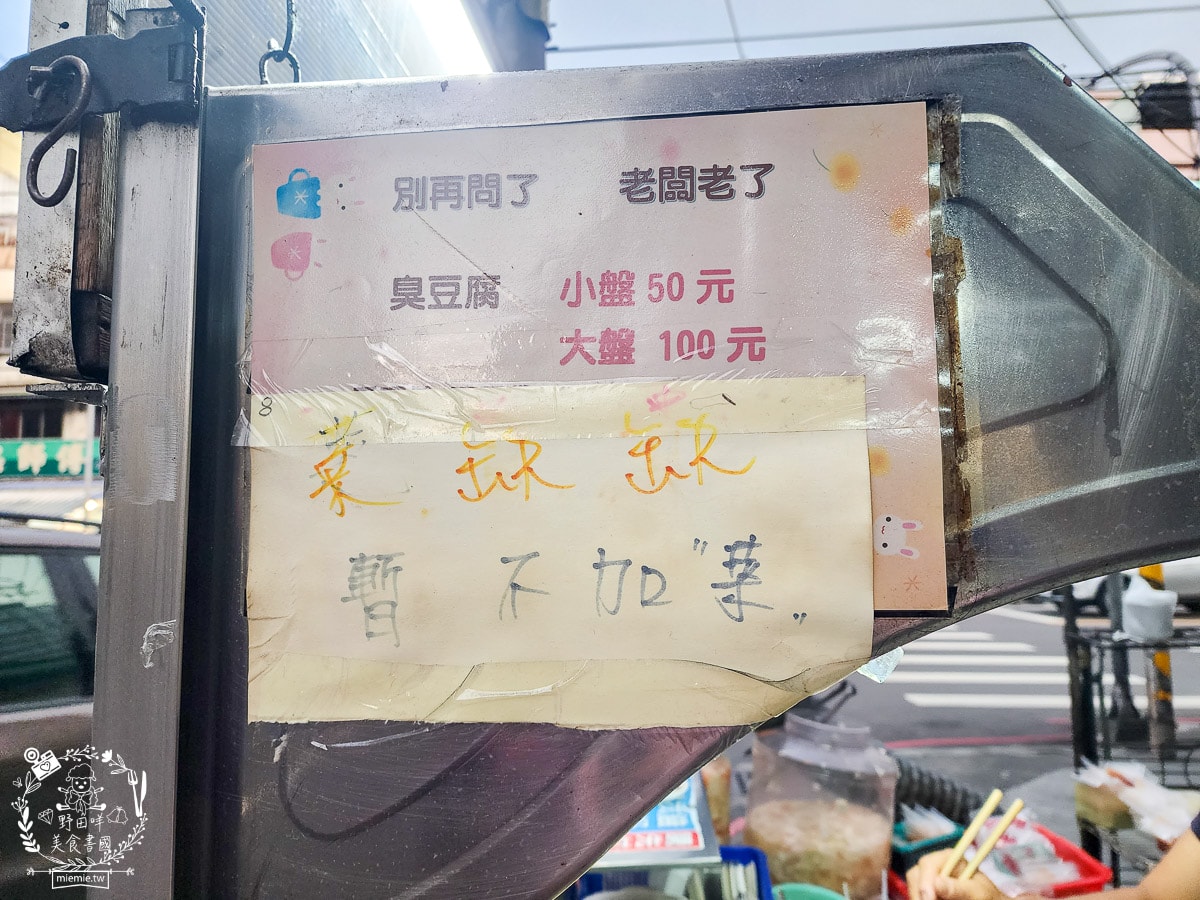 別再問了 老闆老了
臭豆腐 小盤 50 元
大盤 100 元
8
菜 缺 缺
暫 不 加 "菜"
師傅
野田咩
美食書國
miemie.tw